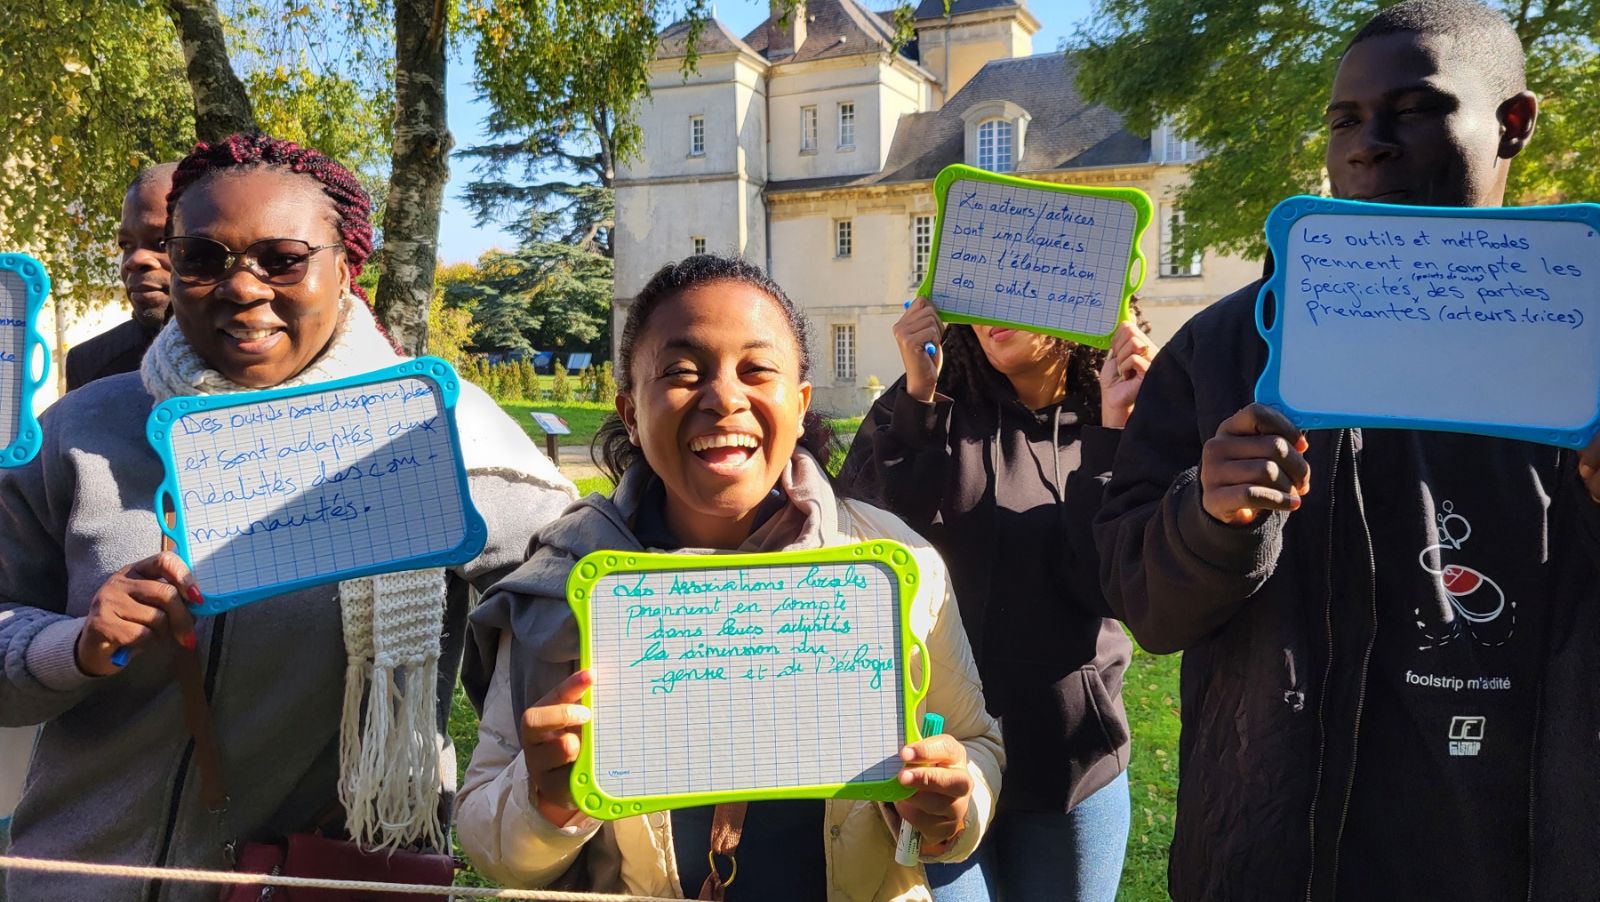 Des outils sont disponibles
et sont adaptés aux
réalités des com-
munautés.
Les Associations locales
prennent en compte
dans leurs activités
la dimension du
genre et de l'écologie
Les acteurs/actrices
sont impliqué.e.s
dans l'élaboration
des outils adaptés
Les outils et méthodes
prennent en compte les
(points de vue)
spécificités des parties
prenantes (acteurs.trices)
foolstrip m'a dité